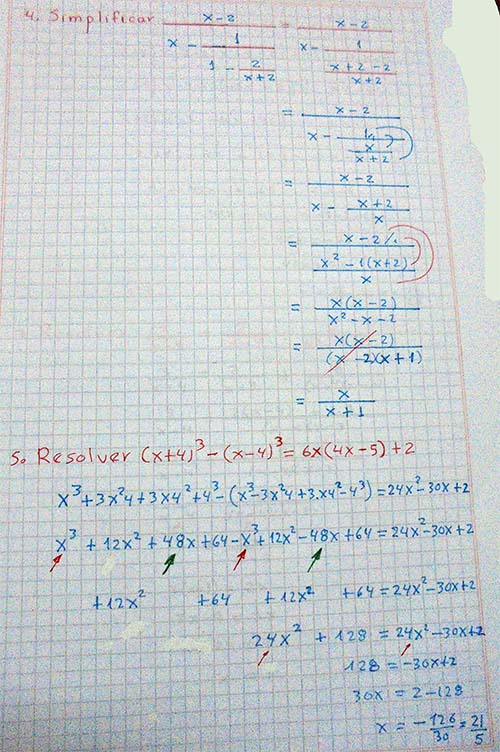 4. Simplificar (x-2)/(x - 1/(1 - 2/(x+2))) = (x-2)/(x - 1/((x+2-2)/(x+2)))
= (x-2)/(x - 1/(x/(x+2)))
= (x-2)/(x - (x+2)/x)
= ((x-2)/1)/((x² - 1(x+2))/x)
= x(x-2)/(x²-x-2)
= x(x-2)/((x-2)(x+1))
= x/(x+1)
5. Resolver (x+4)³-(x-4)³=6x(4x-5)+2
x³+3x²4+3x4²+4³-(x³-3x²4+3.x4²-4³)=24x²-30x+2
x³+12x²+48x+64-x³+12x²-48x+64=24x²-30x+2
+12x² +64 +12x² +64=24x²-30x+2
24x² +128=24x²-30x+2
128=-30x+2
30x=2-128
x=-126/30=21/5